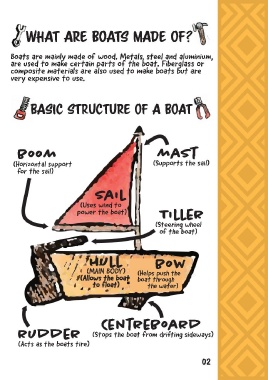 WHAT ARE BOATS MADE OF?
Boats are mainly made of wood. Metals, steel and aluminium,
are used to make certain parts of the boat. Fiberglass or
composite materials are also used to make boats but are
very expensive to use.
BASIC STRUCTURE OF A BOAT
BOOM
(Horizontal support
for the sail)
MAST
(Supports the sail)
SAIL
(Uses wind to
power the boat)
TILLER
(Steering wheel
of the boat)
HULL
(MAIN BODY)
(Allows the boat
to float)
BOW
(Helps push the
boat through
the water)
RUDDER
(Acts as the boats tire)
CENTREBOARD
(Stops the boat from drifting sideways)
02